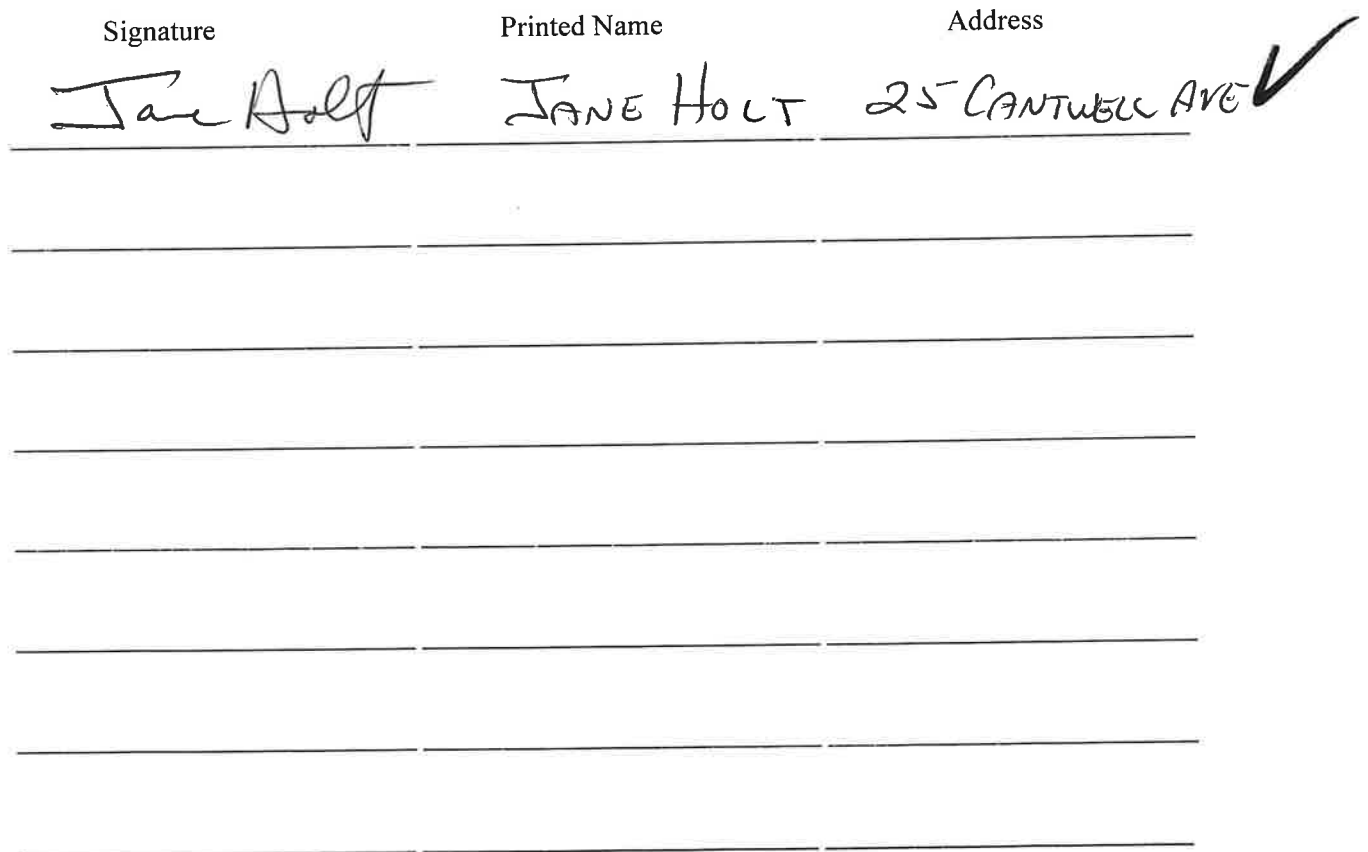 Signature Printed Name Address
Jane Holt JANE HOLT 25 CANTWELL AVE ✓